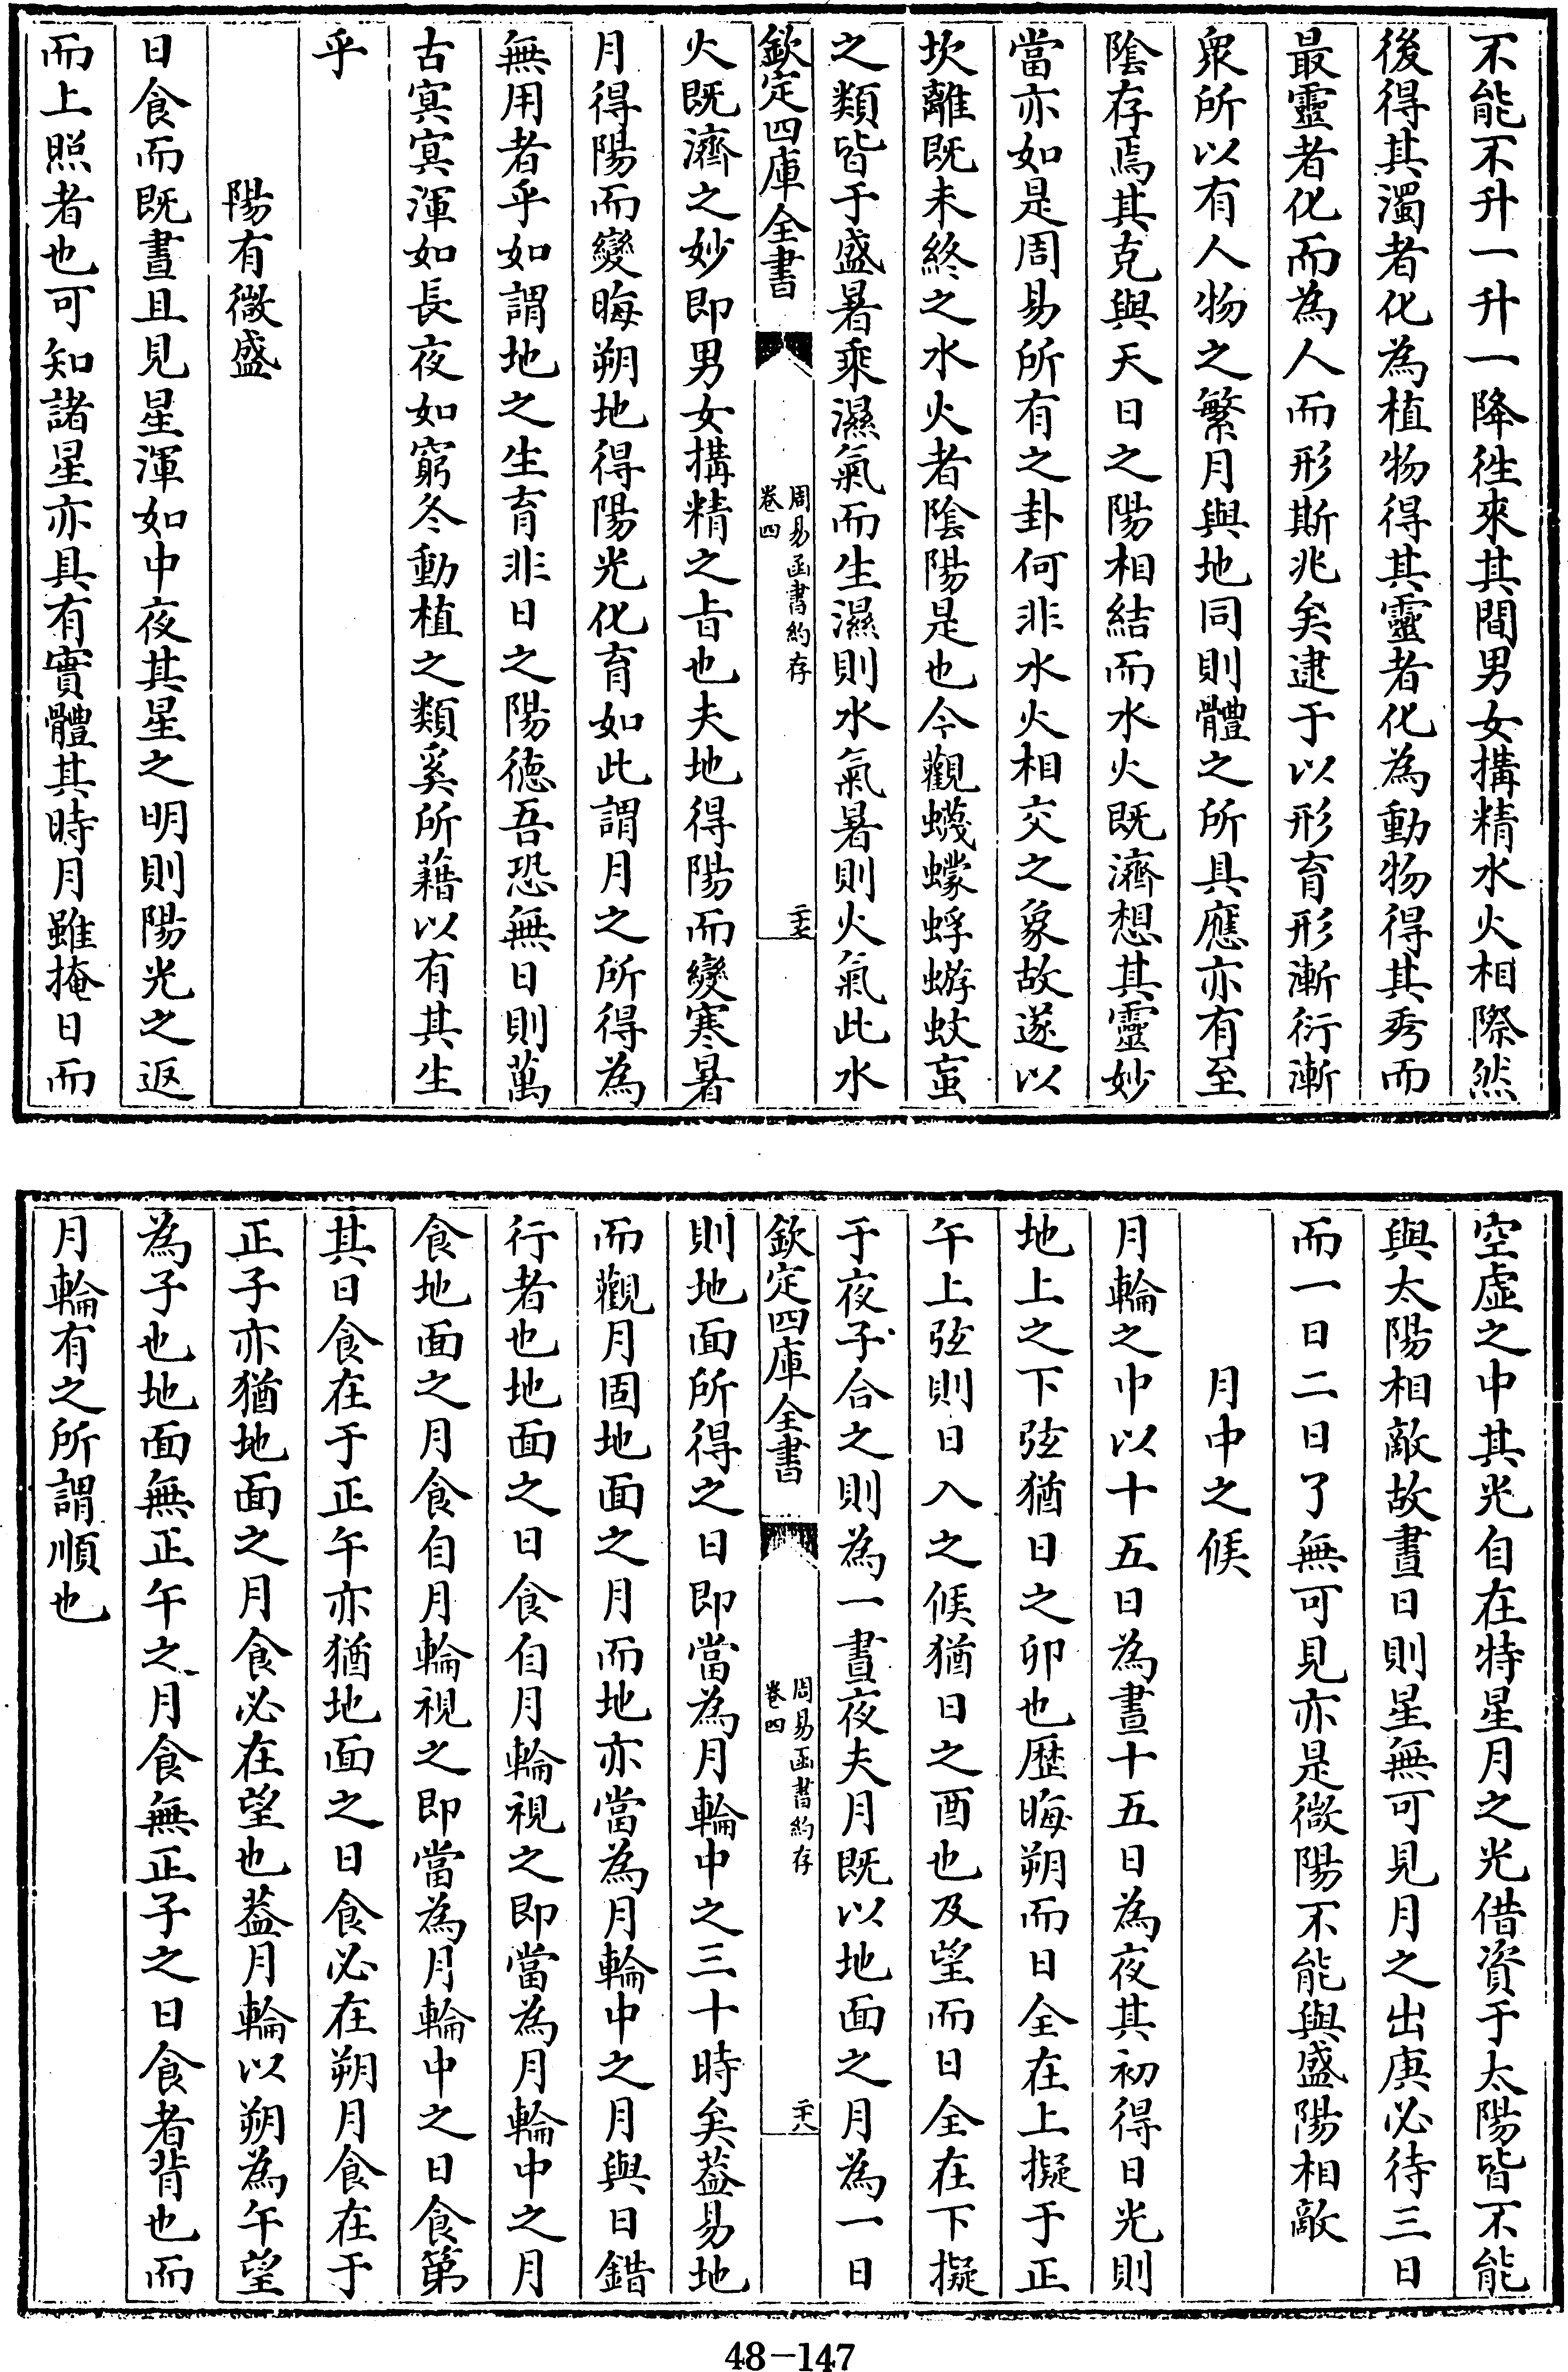 不能不升一升一降徃來其間男女搆精水火相際然
後得其濁者化為植物得其靈者化為動物得其秀而
最靈者化而為人而形斯兆矣逮于以形育形漸衍漸
衆所以有人物之繁月與地同則體之所具應亦有至
隂存焉其克與天日之陽相結而水火既濟想其靈妙
當亦如是周易所有之卦何非水火相交之象故遂以
坎離既未終之水火者隂陽是也今觀蠛蠓蜉蝣蚊䖟
之類皆于盛暑乘濕氣而生濕則水氣暑則火氣此水
欽定四庫全書
周易函書約存
卷四
二十五
火既濟之妙即男女搆精之㫖也夫地得陽而變寒暑
月得陽而變晦朔地得陽光化育如此謂月之所得為
無用者乎如謂地之生育非日之陽德吾恐無日則萬
古冥冥渾如長夜如窮冬動植之類奚所藉以有其生
乎
陽有微盛
日食而既晝且見星渾如中夜其星之明則陽光之返
而上照者也可知諸星亦具有實體其時月雖掩日而
空虛之中其光自在特星月之光借資于太陽皆不能
與太陽相敵故晝日則星無可見月之出庚必待三日
而一日二日了無可見亦是微陽不能與盛陽相敵
月中之候
月輪之中以十五日為晝十五日為夜其初得日光則
地上之下弦猶日之卯也歴晦朔而日全在上擬于正
午上弦則日入之候猶日之酉也及望而日全在下擬
于夜子合之則為一晝夜夫月既以地面之月為一日
欽定四庫全書
周易函書約存
卷四
二十六
則地面所得之日即當為月輪中之三十時矣葢易地
而觀月固地面之月而地亦當為月輪中之月與日錯
行者也地面之日食自月輪視之即當為月輪中之月
食地面之月食自月輪視之即當為月輪中之日食第
其日食在于正午亦猶地面之日食必在朔月食在于
正子亦猶地面之月食必在望也葢月輪以朔為午望
為子也地面無正午之月食無正子之日食者背也而
月輪有之所謂順也
48-147